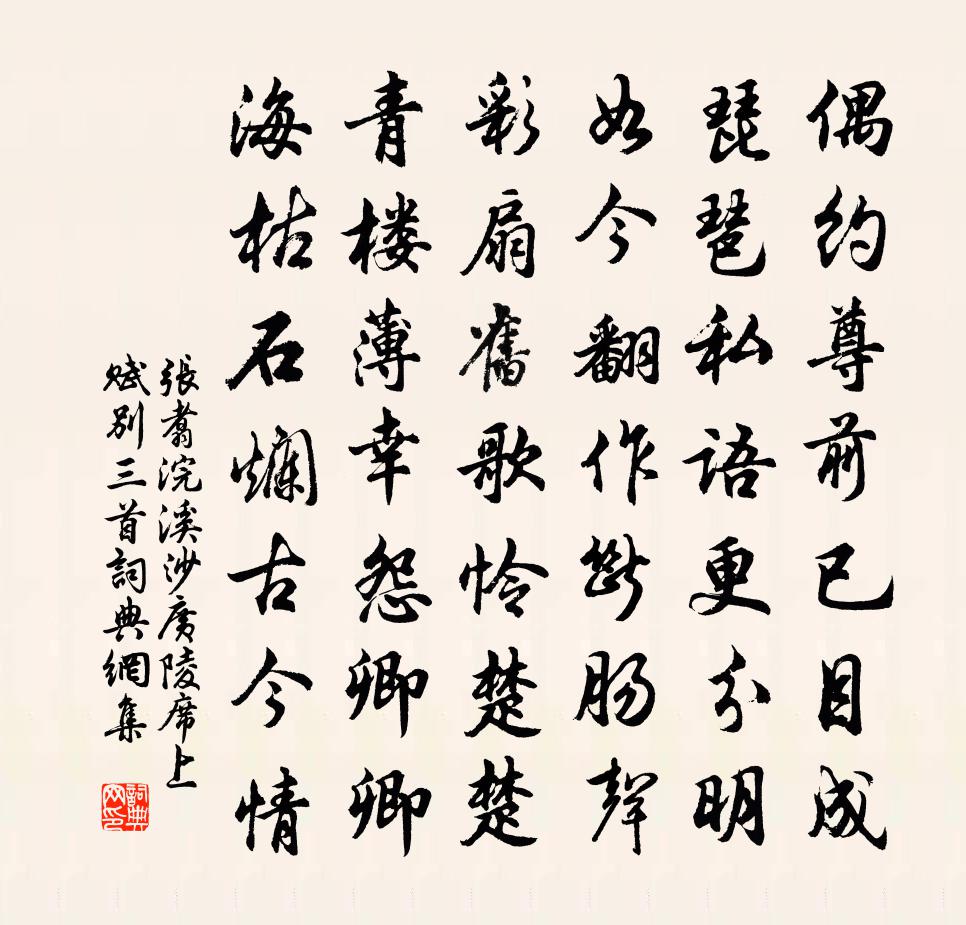 偶约尊前已目成
琵琶私语更分明
如今翻作断肠声
彩扇旧歌怜楚楚
青楼薄幸怨卿卿
海枯石烂古今情
張翥浣溪沙廣陵席上
賦别三首詞典網集
詞典網印